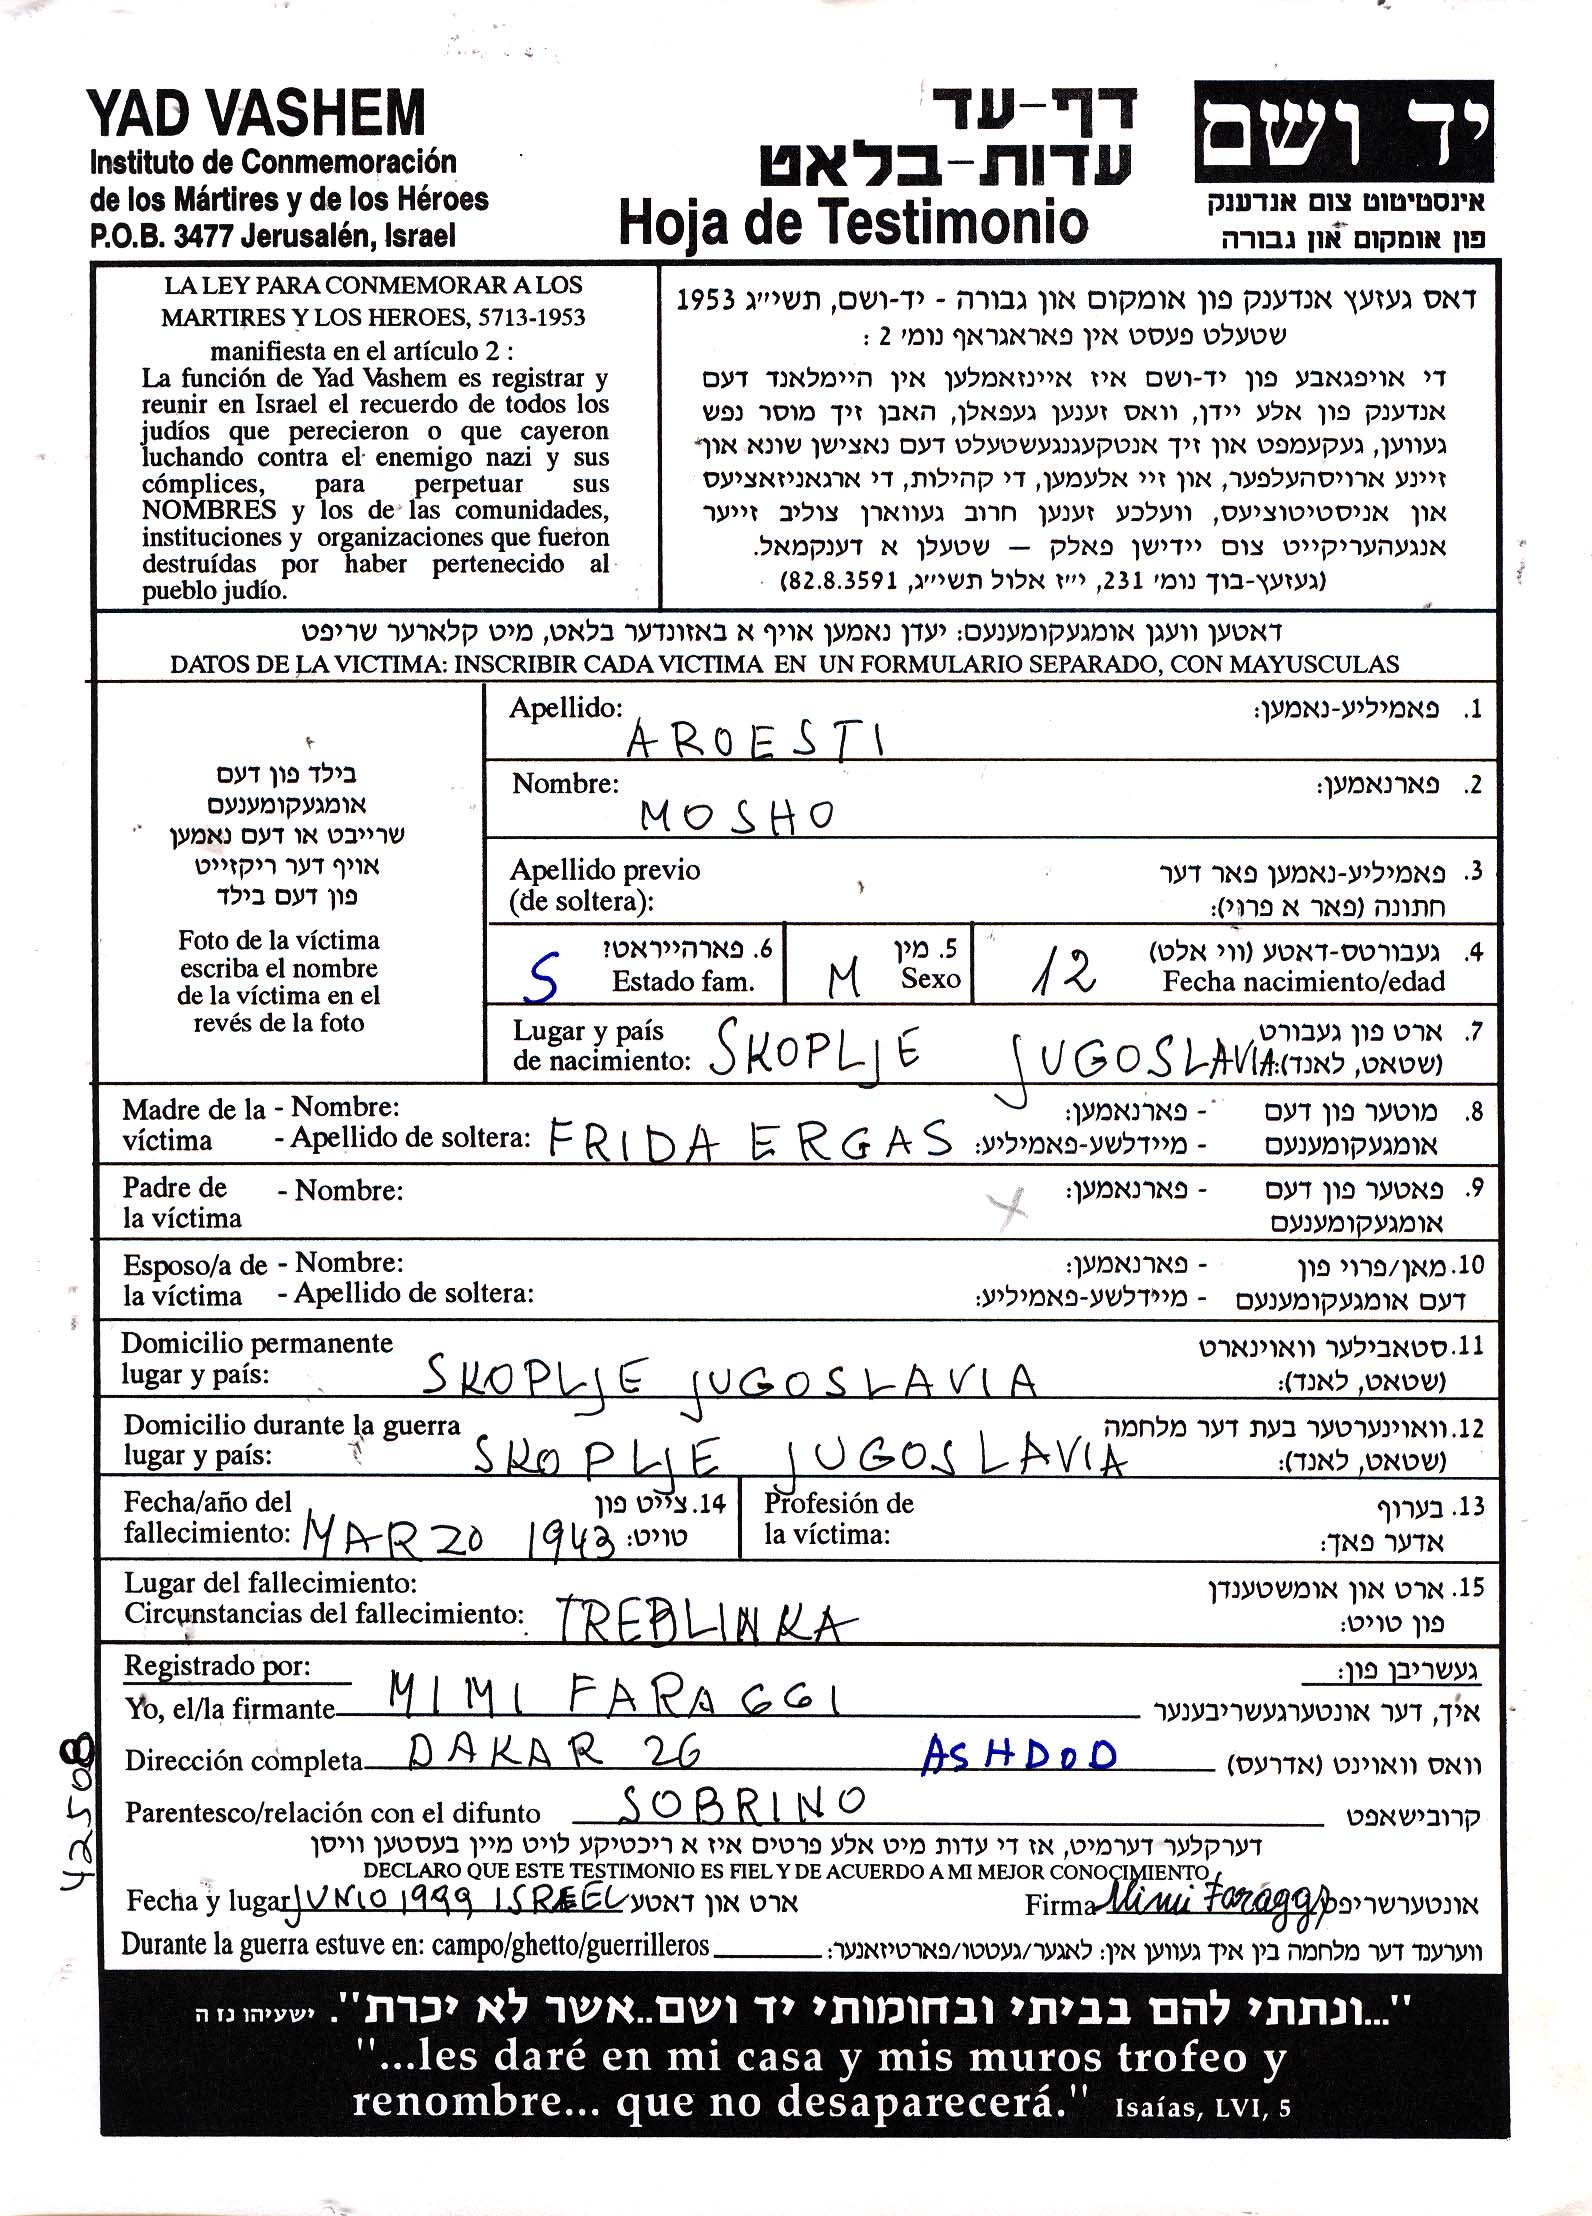 YAD VASHEM
Instituto de Conmemoración
de los Mártires y de los Héroes
P.O.B. 3477 Jerusalén, Israel
דף-עד
עדות-בלאט
Hoja de Testimonio
יד ושם
אינסטיטוט צום אנדענק
פון אומקום און גבורה
LA LEY PARA CONMEMORAR A LOS
MARTIRES Y LOS HEROES, 5713-1953
manifiesta en el artículo 2 :
La función de Yad Vashem es registrar y
reunir en Israel el recuerdo de todos los
judíos que perecieron o que cayeron
luchando contra el enemigo nazi y sus
cómplices, para perpetuar sus
NOMBRES y los de las comunidades,
instituciones y organizaciones que fueron
destruídas por haber pertenecido al
pueblo judío.
דאס געזעץ אנדענק פון אומקום און גבורה - יד-ושם, תשי״ג 1953
שטעלט פעסט אין פאראגראף נומ׳ 2 :
די אויפגאבע פון יד-ושם איז איינזאמלען אין היימלאנד דעם
אנדענק פון אלע יידן, וואס זענען געפאלן, האבן זיך מוסר נפש
געווען, געקעמפט און זיך אנטקעגנגעשטעלט דעם נאצישן שונא און
זיינע ארויסהעלפער, און זיי אלעמען, די קהילות, די ארגאניזאציעס
און אניסטיטוציעס, וועלכע זענען חרוב געווארן צוליב זייער
אנגעהעריקייט צום יידישן פאלק — שטעלן א דענקמאל.
(געזעץ-בוך נומ׳ 231, י״ז אלול תשי״ג, 82.8.3591)
דאטען וועגן אומגעקומענעם: יעדן נאמען אויף א באזונדער בלאט, מיט קלארער שריפט
DATOS DE LA VICTIMA: INSCRIBIR CADA VICTIMA EN UN FORMULARIO SEPARADO, CON MAYUSCULAS
בילד פון דעם
אומגעקומענעם
שרייבט או דעם נאמען
אויף דער ריקזייט
פון דעם בילד
Foto de la víctima
escriba el nombre
de la víctima en el
revés de la foto
Apellido: AROESTI 1. פאמיליע-נאמען:
Nombre: MOSHO 2. פארנאמען:
Apellido previo 3. פאמיליע-נאמען פאר דער
(de soltera): חתונה (פאר א פרוי):
6. פארהייראט? 5. מין 4. געבורטס-דאטע (ווי אלט)
S Estado fam. M Sexo 12 Fecha nacimiento/edad
Lugar y país 7. ארט פון געבורט
de nacimiento: SKOPLJE JUGOSLAVIA (שטאט, לאנד):
Madre de la - Nombre: - פארנאמען: 8. מוטער פון דעם
víctima - Apellido de soltera: FRIDA ERGAS - מיידלשע-פאמיליע: אומגעקומענעם
Padre de - Nombre: - פארנאמען: 9. פאטער פון דעם
la víctima אומגעקומענעם
Esposo/a de - Nombre: - פארנאמען: 10. מאן/פרוי פון
la víctima - Apellido de soltera: - מיידלשע-פאמיליע: דעם אומגעקומענעם
Domicilio permanente 11. סטאבילער וואוינארט
lugar y país: SKOPLJE JUGOSLAVIA (שטאט, לאנד):
Domicilio durante la guerra 12. וואוינערטער בעת דער מלחמה
lugar y país: SKOPLJE JUGOSLAVIA (שטאט, לאנד):
Fecha/año del 14. צייט פון Profesión de 13. בערוף
fallecimiento: MARZO 1943 טויט: la víctima: אדער פאך:
Lugar del fallecimiento: 15. ארט און אומשטענדן
Circunstancias del fallecimiento: TREBLINKA פון טויט:
Registrado por: געשריבן פון:
Yo, el/la firmante MIMI FARAGGI איך, דער אונטערגעשריבענער
Dirección completa DAKAR 26 ASHDOD וואס וואוינט (אדרעס)
Parentesco/relación con el difunto SOBRINO קרובישאפט
דערקלער דערמיט, אז די עדות מיט אלע פרטים איז א ריכטיקע לויט מיין בעסטען וויסן
DECLARO QUE ESTE TESTIMONIO ES FIEL Y DE ACUERDO A MI MEJOR CONOCIMIENTO
Fecha y lugar JUNIO 1999 ISREEL ארט און דאטע Firma Mimi Faraggi אונטערשריפט
Durante la guerra estuve en: campo/ghetto/guerrilleros ווערענד דער מלחמה בין איך געווען אין: לאגער/געטטו/פארטיזאנער:
42508
"...ונתתי להם בביתי ובחומותי יד ושם..אשר לא יכרת". ישעיהו נז ה
"...les daré en mi casa y mis muros trofeo y
renombre... que no desaparecerá." Isaías, LVI, 5